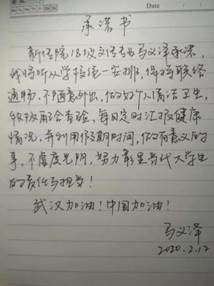 承诺书
新传院18级文传专业马文泽承诺,
我将听从学校统一安排,保持联络
通畅.不随意外出,做好个人清洁卫生,
积极配合查验,每日定时汇报健康
情况,并利用假期时间,做有意义的
事,不虚度光阴,努力彰显当代大学生
的责任与担当!
武汉加油!中国加油!
马文泽
2020.2.12